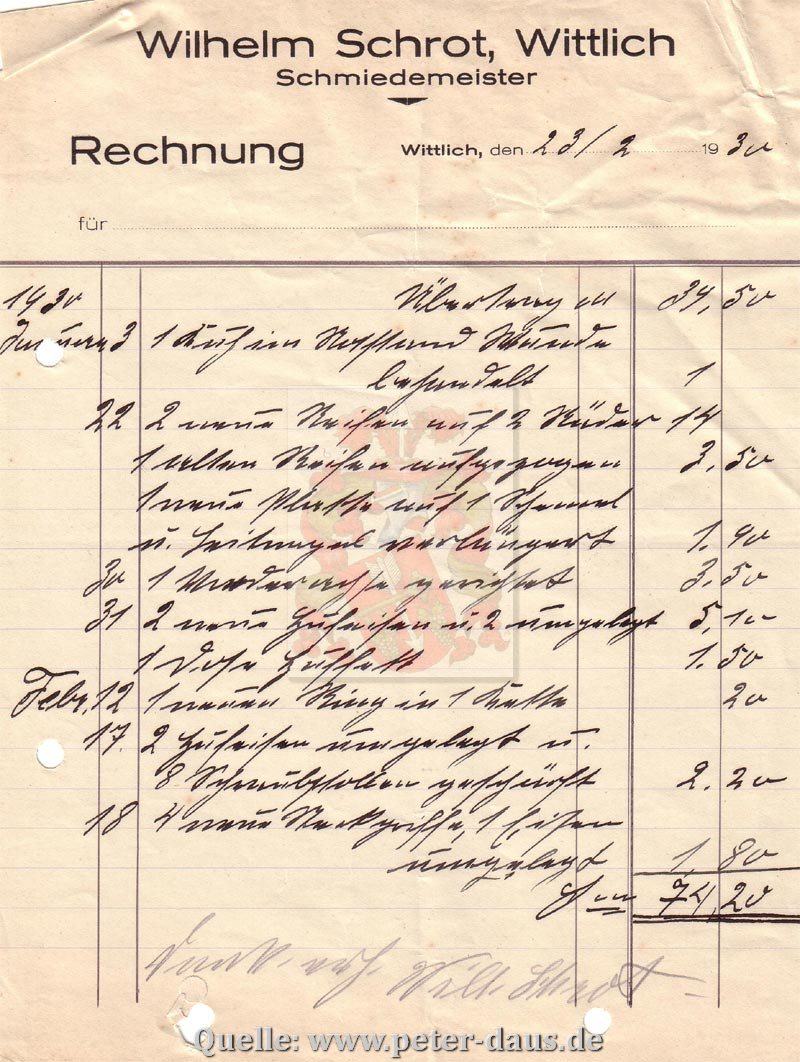 Wilhelm Schrot, Wittlich
Schmiedemeister
Rechnung Wittlich, den 23/2 1930
für
1930 Übertrag M 39,50
Januar 3 1 Kuh im Wunde
behandelt 1
22 2 neue Reifen auf 2 Räder 14
1 alten Reifen aufgezogen 3,50
1 neue Platte auf 1 Schemel
u. Leitnagel verlängert 1.90
30 1 Vorderachse gerichtet 3.50
31 2 neue Hufeisen u. 2 umgelegt 5,10
1 Dose Huffett 1.50
Febr. 12 1 neuen Ring in 1 Kette 20
17. 2 Hufeisen umgelegt u.
8 Schraubstollen geschärft 2.20
18 4 neue 1 Eisen
umgelegt 1,80
74,20
Dank. erh. Wilh. Schrot
Quelle: www.peter-daus.de